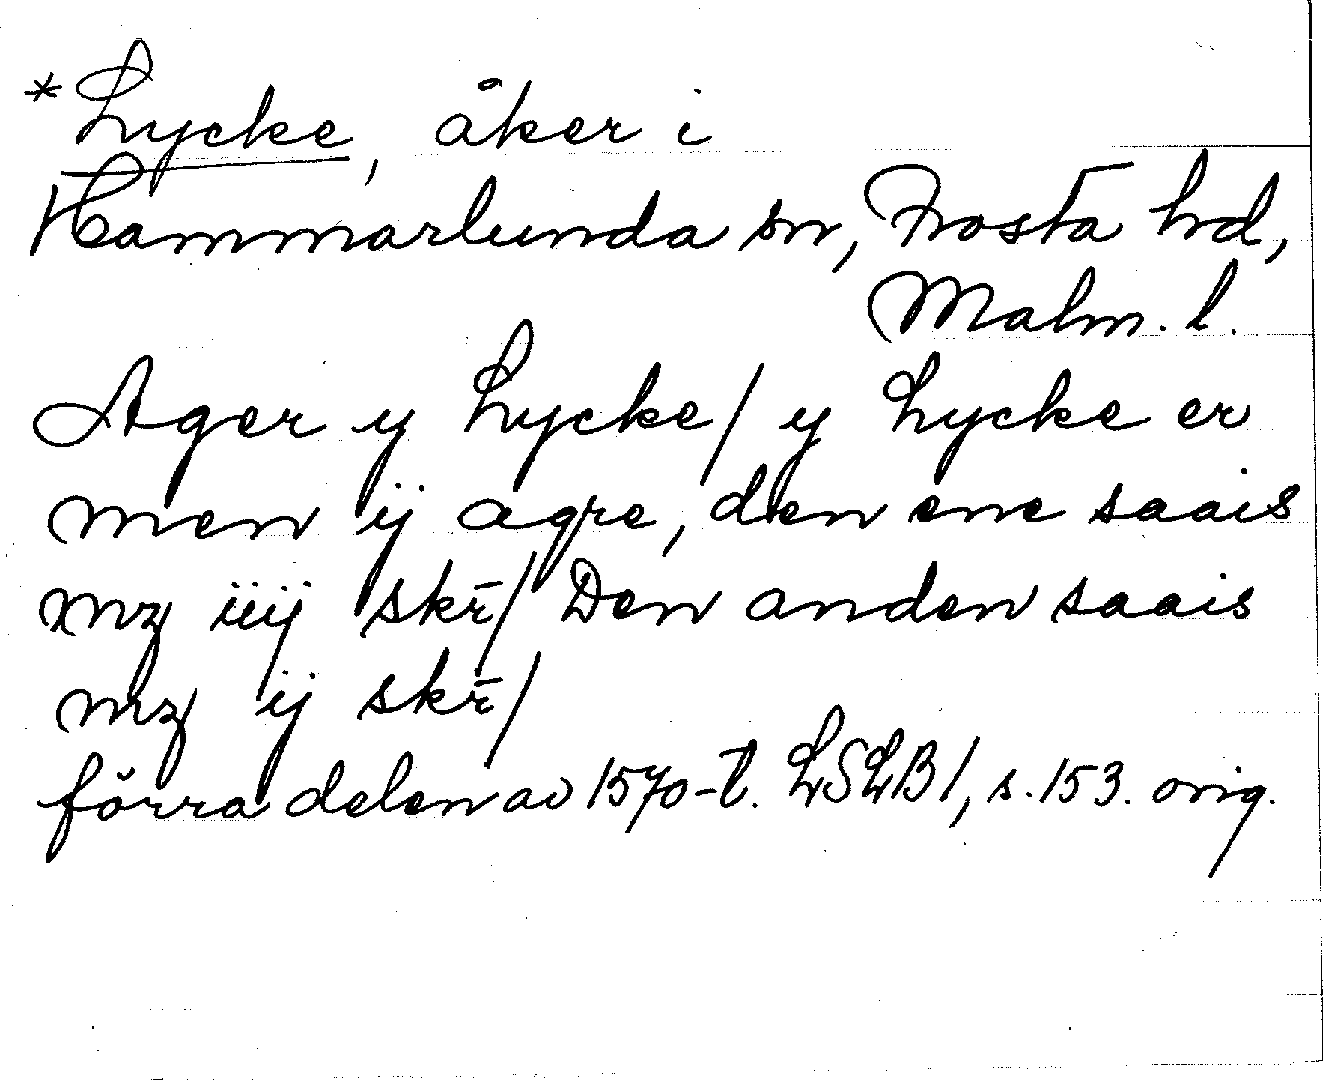 *Lycke, åker i
Hammarlunda sn, Frosta hd,
Malm. l.
Ager y Lycke/ y Lycke er
men ij agre, den ene saais
mz iiij skr̄/ Den anden saais
mz ij skr̄/
förra delen av 1570-t. LSLB1, s. 153. orig.